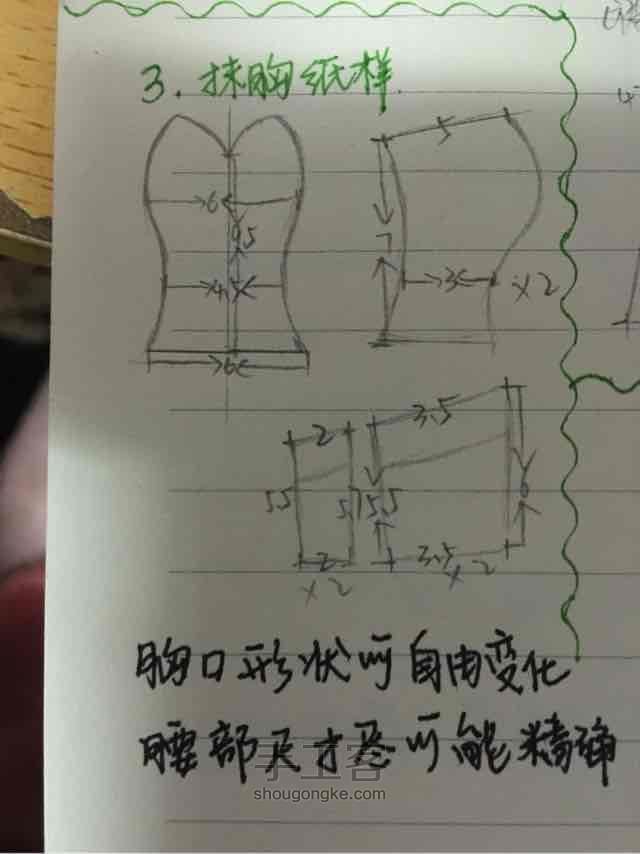 3. 抹胸纸样
5
6
9.5
7
4.5
3
×2
6
2
3.5
5.5
5.5
6
2
3.5
×2
×2
胸口形状可自由变化
腰部尺寸尽可能精确
手工客
shougongke.com